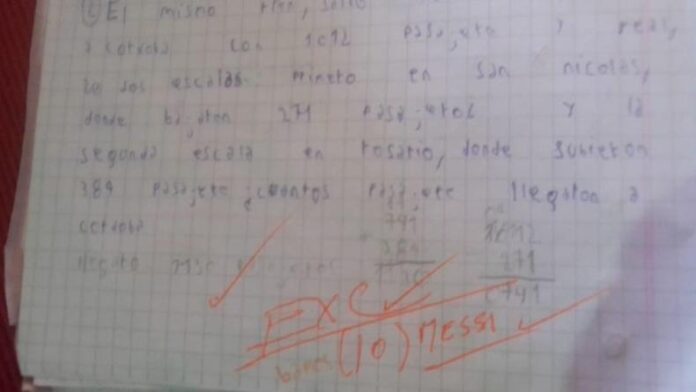 El mismo tren, salio
a cordoba con 1012 pasajeros y real,
zo dos escalas. Primero en san nicolas,
donde bajaron 271 pasajeros y la
segunda escala en rosario, donde subieron
389 pasajeros ¿cuantos pasajeros llegaron a
cordoba
llegaron 1130 pasajeros
741
1012
271
0741
EXC
(10) MESSI